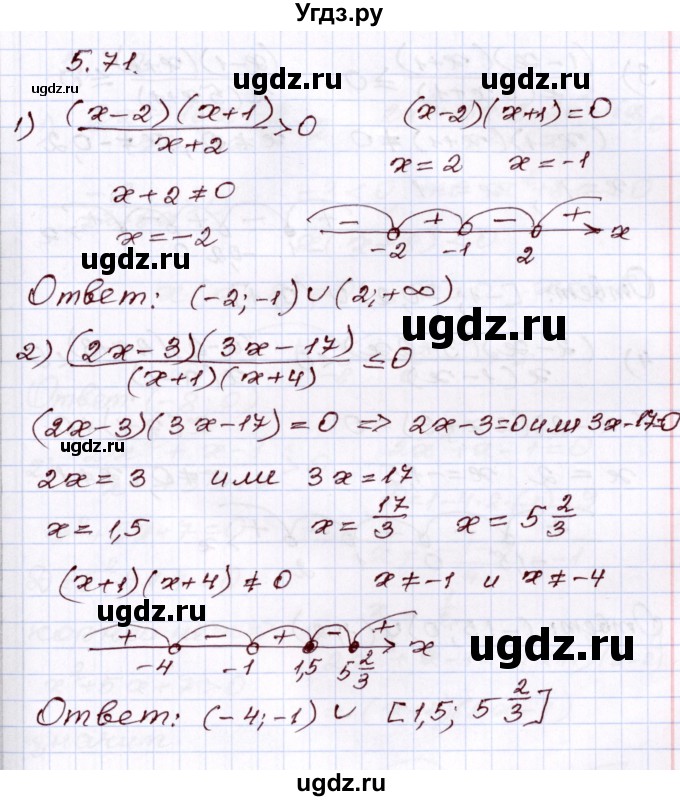 Угдз.ру
5.71.
1) (x-2)(x+1)/(x+2) > 0    (x-2)(x+1)=0
x+2≠0    x=2    x=-1
x=-2
- + - +
-2 -1 2 x
Ответ: (-2;-1)∪(2;+∞)
2) (2x-3)(3x-17)/((x+1)(x+4)) ≤ 0
(2x-3)(3x-17)=0 => 2x-3=0 или 3x-17=0
2x=3 или 3x=17
x=1,5    x=17/3    x=5 2/3
(x+1)(x+4)≠0    x≠-1 и x≠-4
+ - + - +
-4 -1 1,5 5 2/3 x
Ответ: (-4;-1) ∪ [1,5; 5 2/3]
ugdz.ru
ugdz.ru
ugdz.ru
ugdz.ru
ugdz.ru
ugdz.ru
ugdz.ru
ugdz.ru
ugdz.ru
ugdz.ru
ugdz.ru